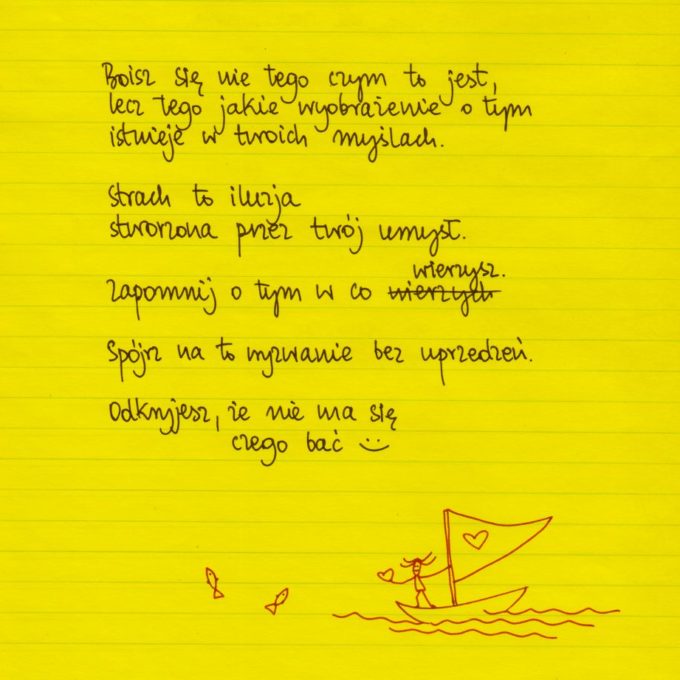 Boisz się nie tego czym to jest,
lecz tego jakie wyobrażenie o tym
istnieje w twoich myślach.
Strach to iluzja
stworzona przez twój umysł.
wierzysz.
Zapomnij o tym w co wierzych
Spójrz na to wyzwanie bez uprzedzeń.
Odkryjesz, że nie ma się
czego bać :)